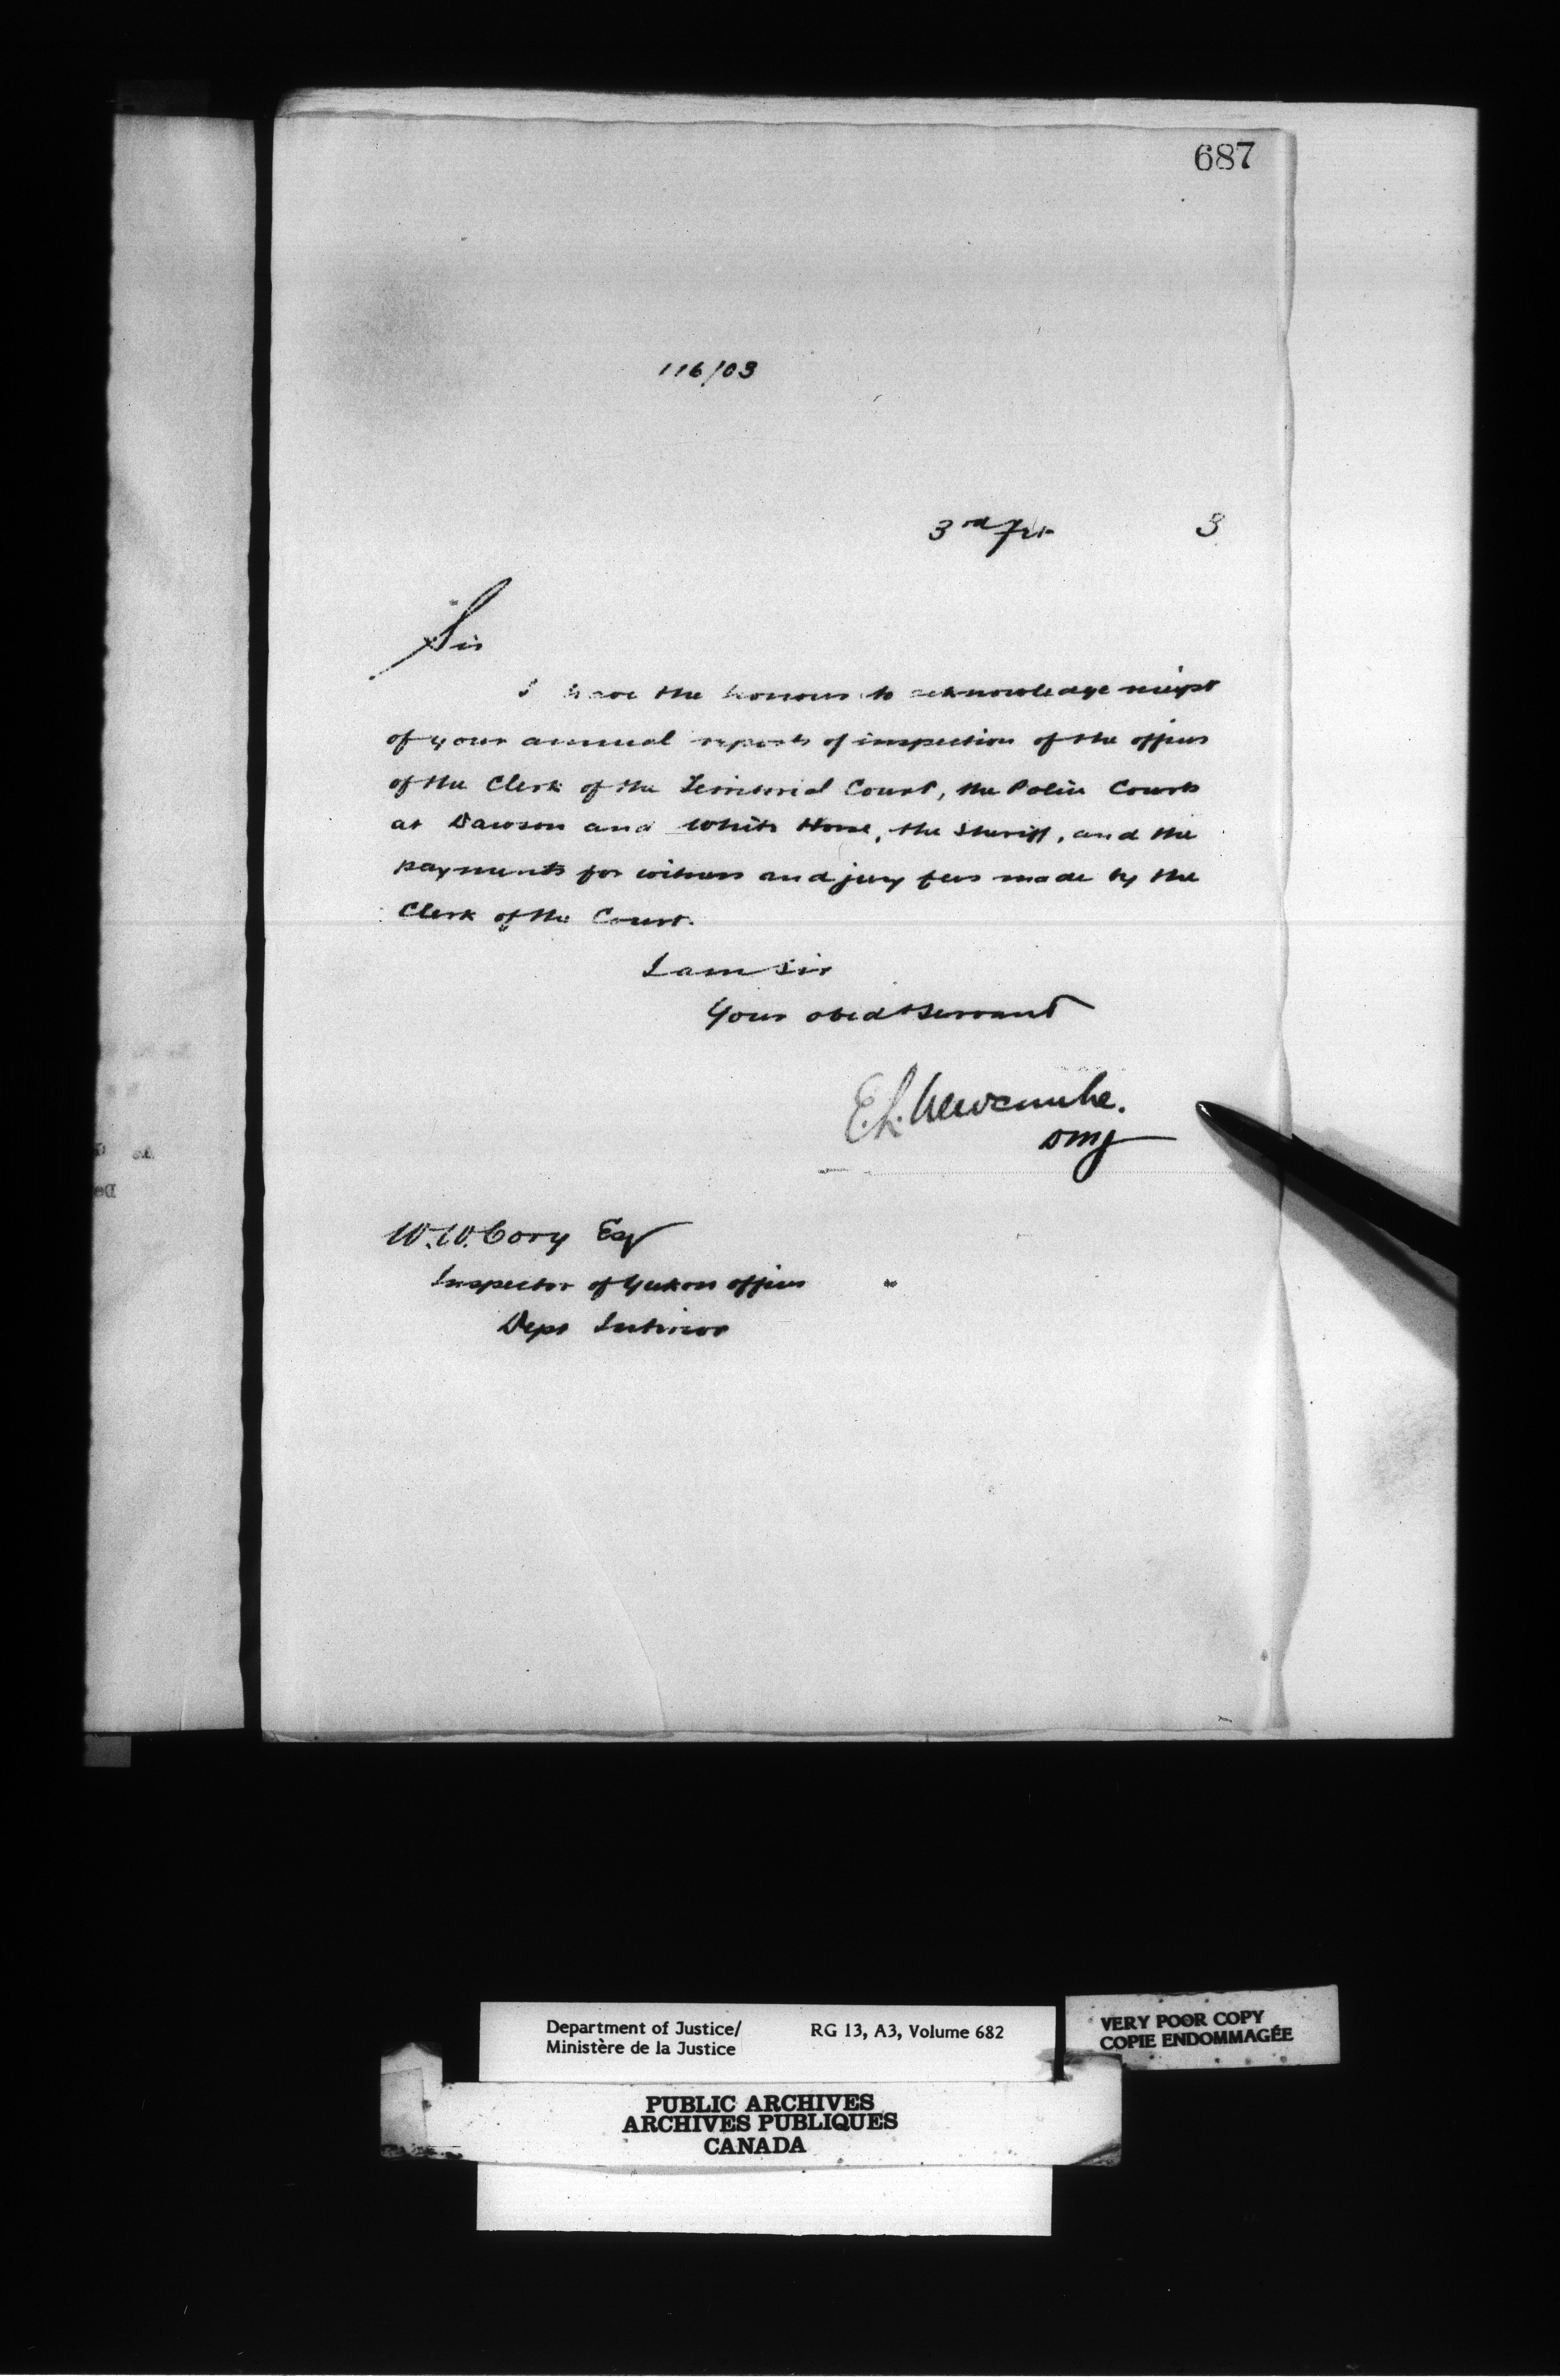 687
116/03
3rd Feb 3
Sir
I have the honour to acknowledge receipt
of your annual reports of inspection of the offices
of the Clerk of the Territorial Court, the Police Courts
at Dawson and White Horse, the Sheriff, and the
payments for witness and jury fees made by the
Clerk of the Court.
I am Sir
Your obedt Servant
E.L. Newcombe.
DMJ
W.W. Cory Esq
Inspector of Yukon offices
Dept Interior
Department of Justice/ RG 13, A3, Volume 682
Ministère de la Justice
VERY POOR COPY
COPIE ENDOMMAGÉE
PUBLIC ARCHIVES
ARCHIVES PUBLIQUES
CANADA